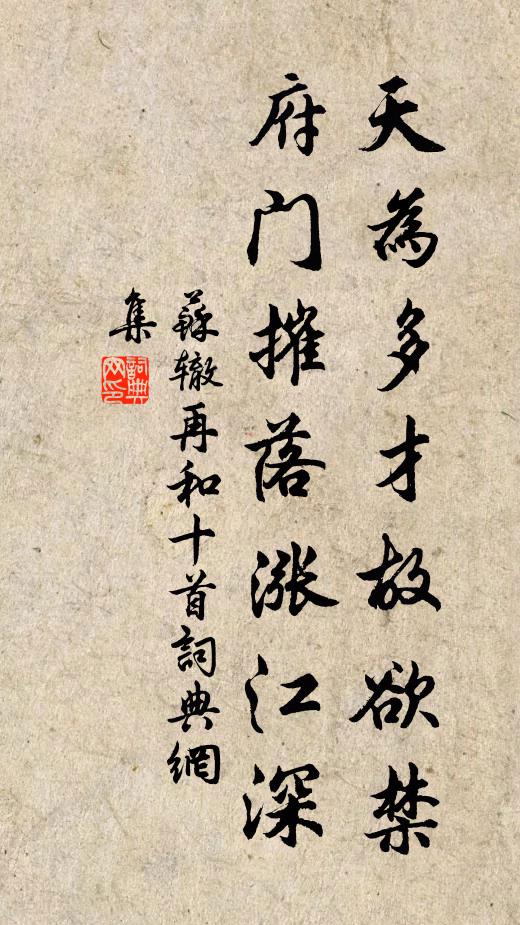 天為多才故欲禁
府门摧落漲江深
蘇辙再和十首詞典網
集
詞典网印